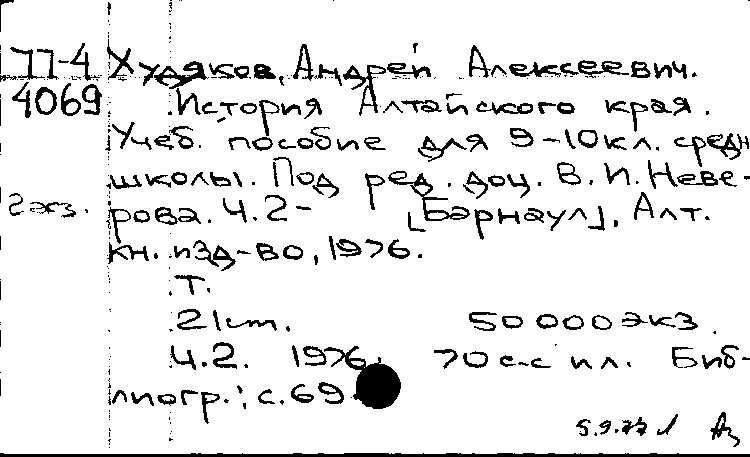 77-4 Худяков, Андрей Алексеевич.
4069 История Алтайского края.
Учеб. пособие для 9-10 кл. средн
школы. Под ред. доц. В. И. Неве-
2 экз. рова. Ч.2- [Барнаул], Алт.
кн. изд-во, 1976.
Т.
21 см. 50 000 экз.
Ч.2. 1976. 70 с. с ил. Биб-
лиогр.: с.69.
5.9.77